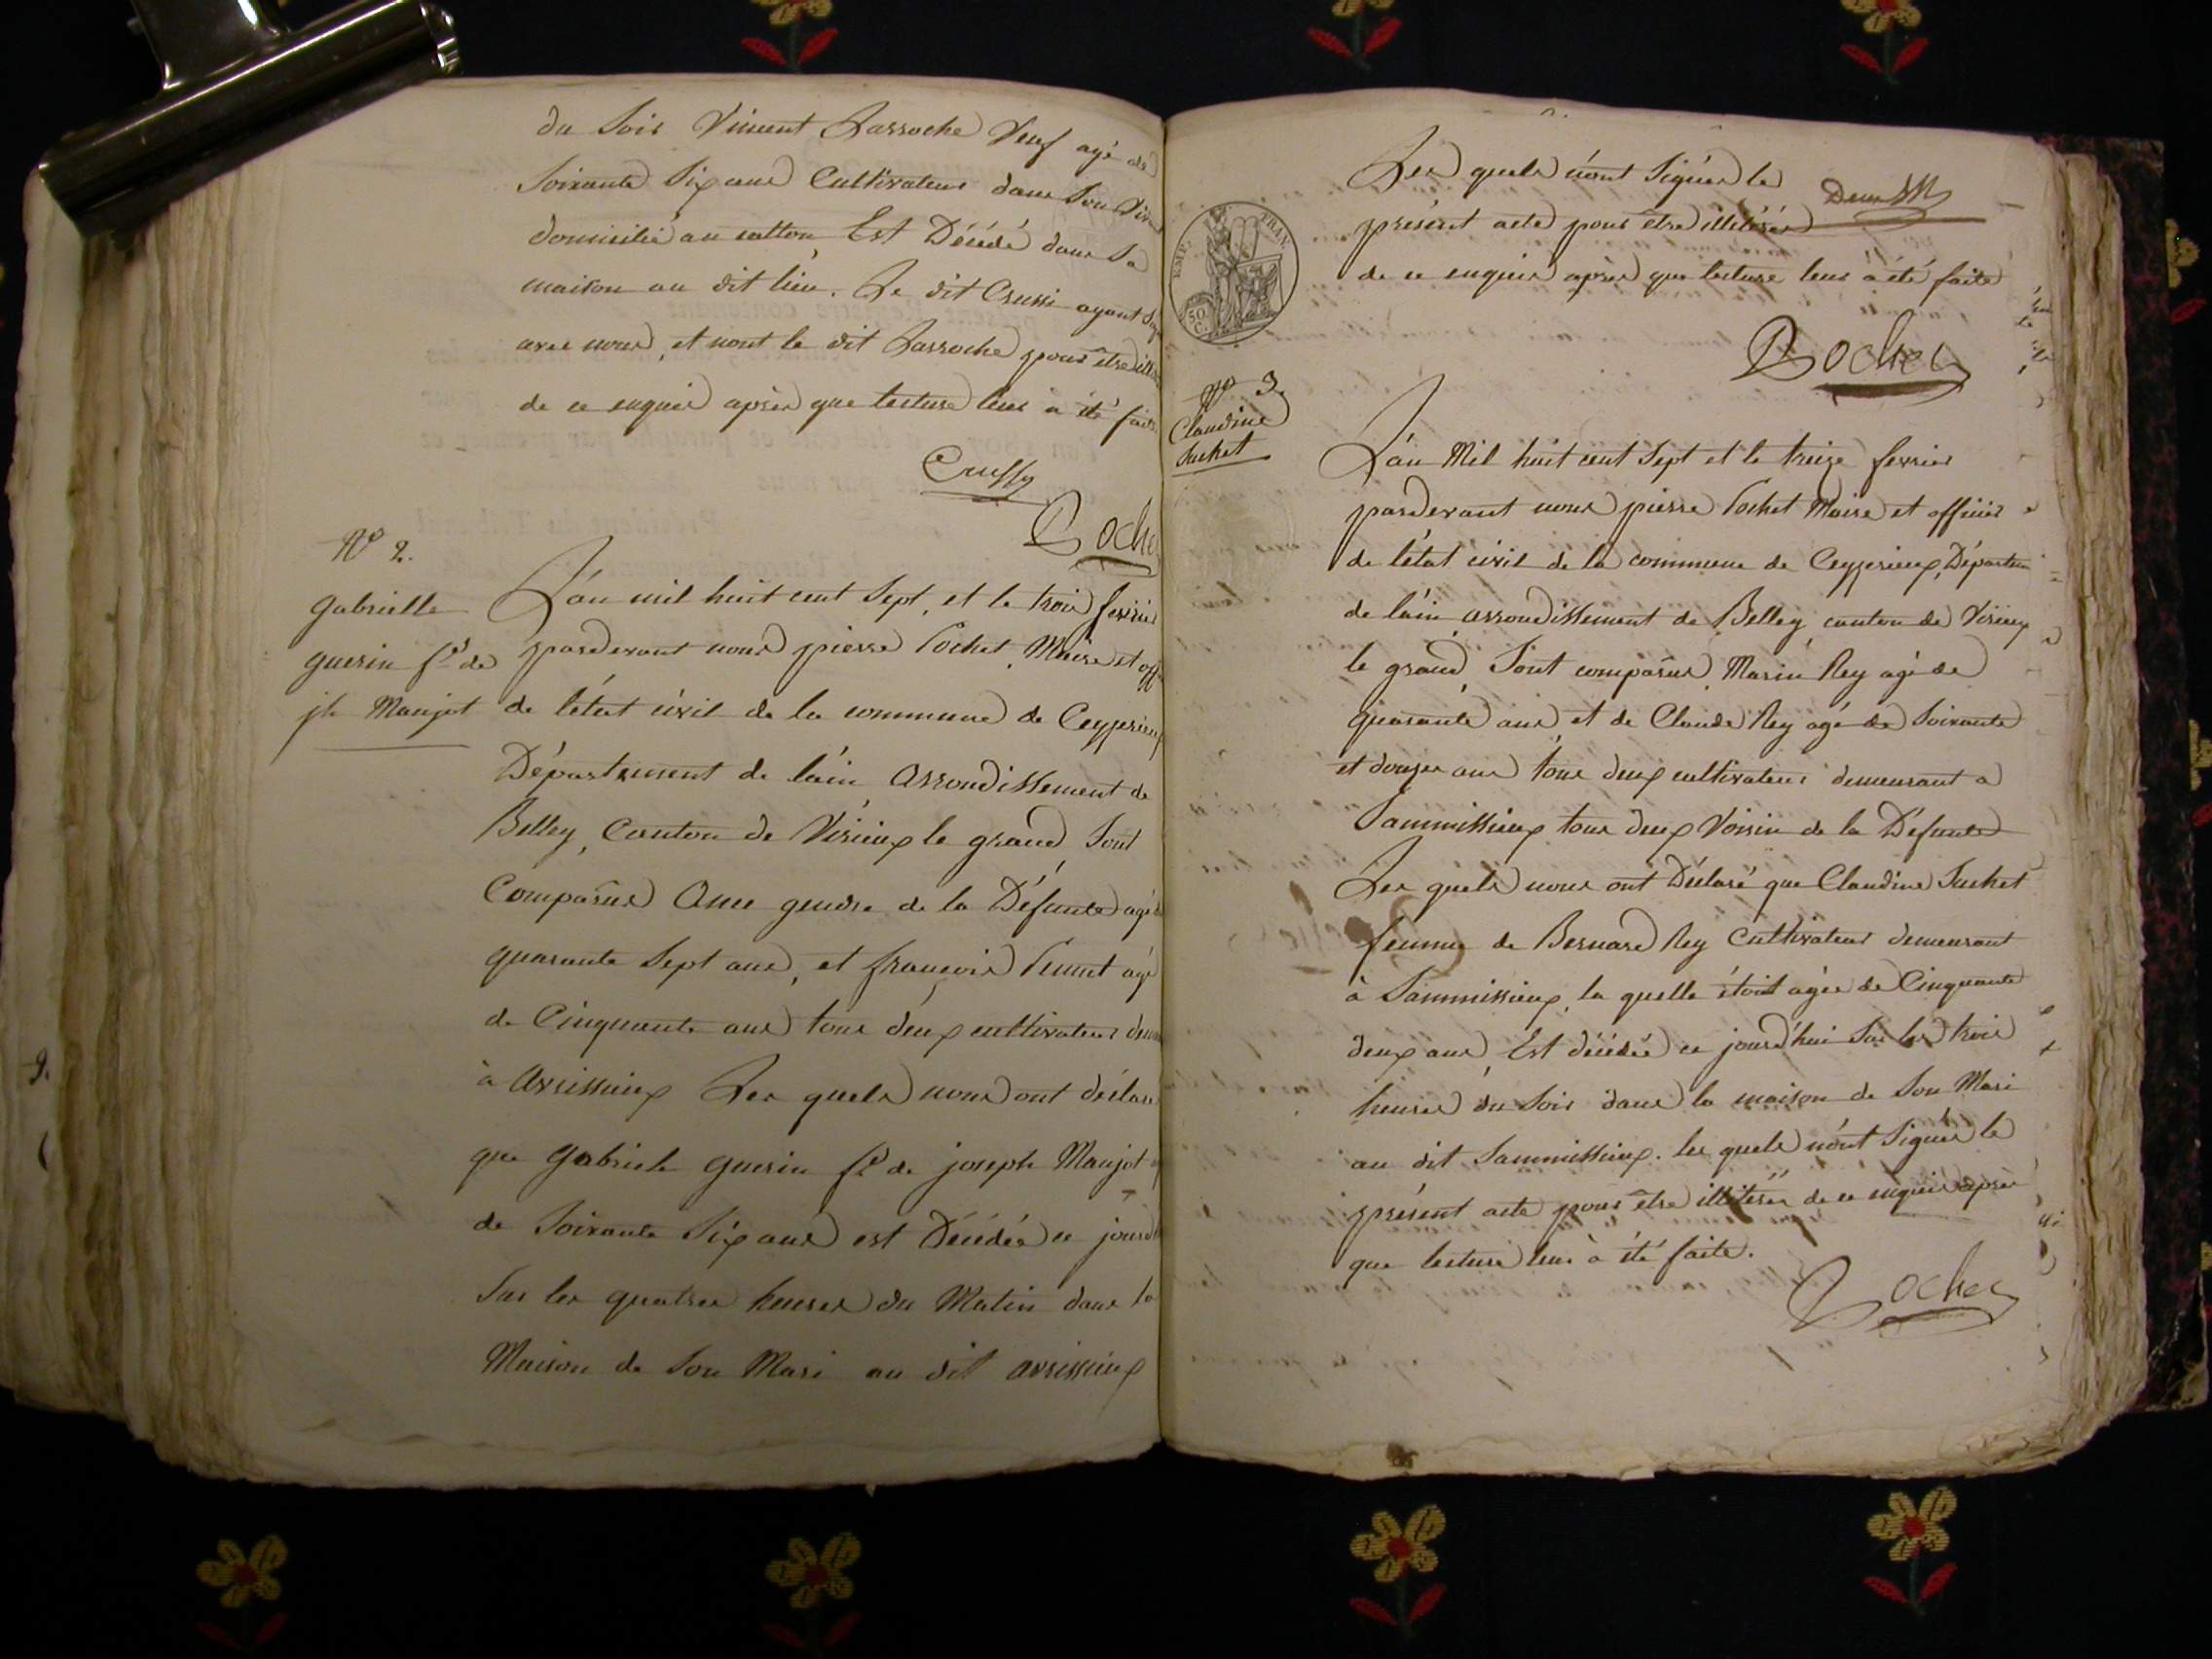 du soir Vincent Larroche Veuf agé de
soixante six ans Cultivateur dans son viv
domicilié au catton Est Décédé dans sa
maison au dit lieu. Le dit Crussi ayant sig
avec nous, et nont le dit Larroche pour être illi
de ce enquir après que lecture leur a été faite
Crussy
Rochet
N° 2.
Gabrielle
guerin f.e de
jh Manjot
L'an mil huit cent sept, et le trois fevrier
pardevant nous pierre Rochet, Maire et off
de l'état civil de la commune de Ceyzerieux
Département de l'ain arrondissement de
Belley, Canton de Virieux le grand, sont
Comparus gendre de la Défunte agé de
quarante sept ans, et françois agé
de Cinquante ans tous deux cultivateurs dem
à Avrissieux Les quels nous ont déclaré
que Gabriele guerin f.e de joseph Manjot
de soixante six ans est Décédée ce jourd
sur les quatres heures du Matin dans la
Maison de son Mari au dit avrissieux
Les quels n'ont signés le
présent acte pour être illitérés
de ce enquir après que lecture leur a été faite
EMP. FRAN.
50 C.
Rochet
N° 3
Claudine
Suchet
L'an Mil huit cent sept et le treize fevrier
pardevant nous pierre Rochet Maire et officier
de l'état civil de la commune de Ceyzerieux, Départem
de l'ain arrondissement de Belley canton de Virieux
le grand, sont comparus Marin Rey agé de
quarante ans et de Claude Rey agé de soixante
et douze ans tous deux cultivateurs demeurant a
Sammissieux tous deux Voisin de la Défunte
Les quels nous ont Déclaré que Claudine Suchet
femme de Bernard Rey Cultivateur demeurant
à Sammissieux, la quelle étoit agée de Cinquante
deux ans, Est décédée ce jourd'hui sur les trois
heures du soir dans la maison de son Mari
au dit Sammissieux. les quels n'ont signés le
présent acte pour être illitérés de ce enquir après
que lecture leur à été faite.
Rochet